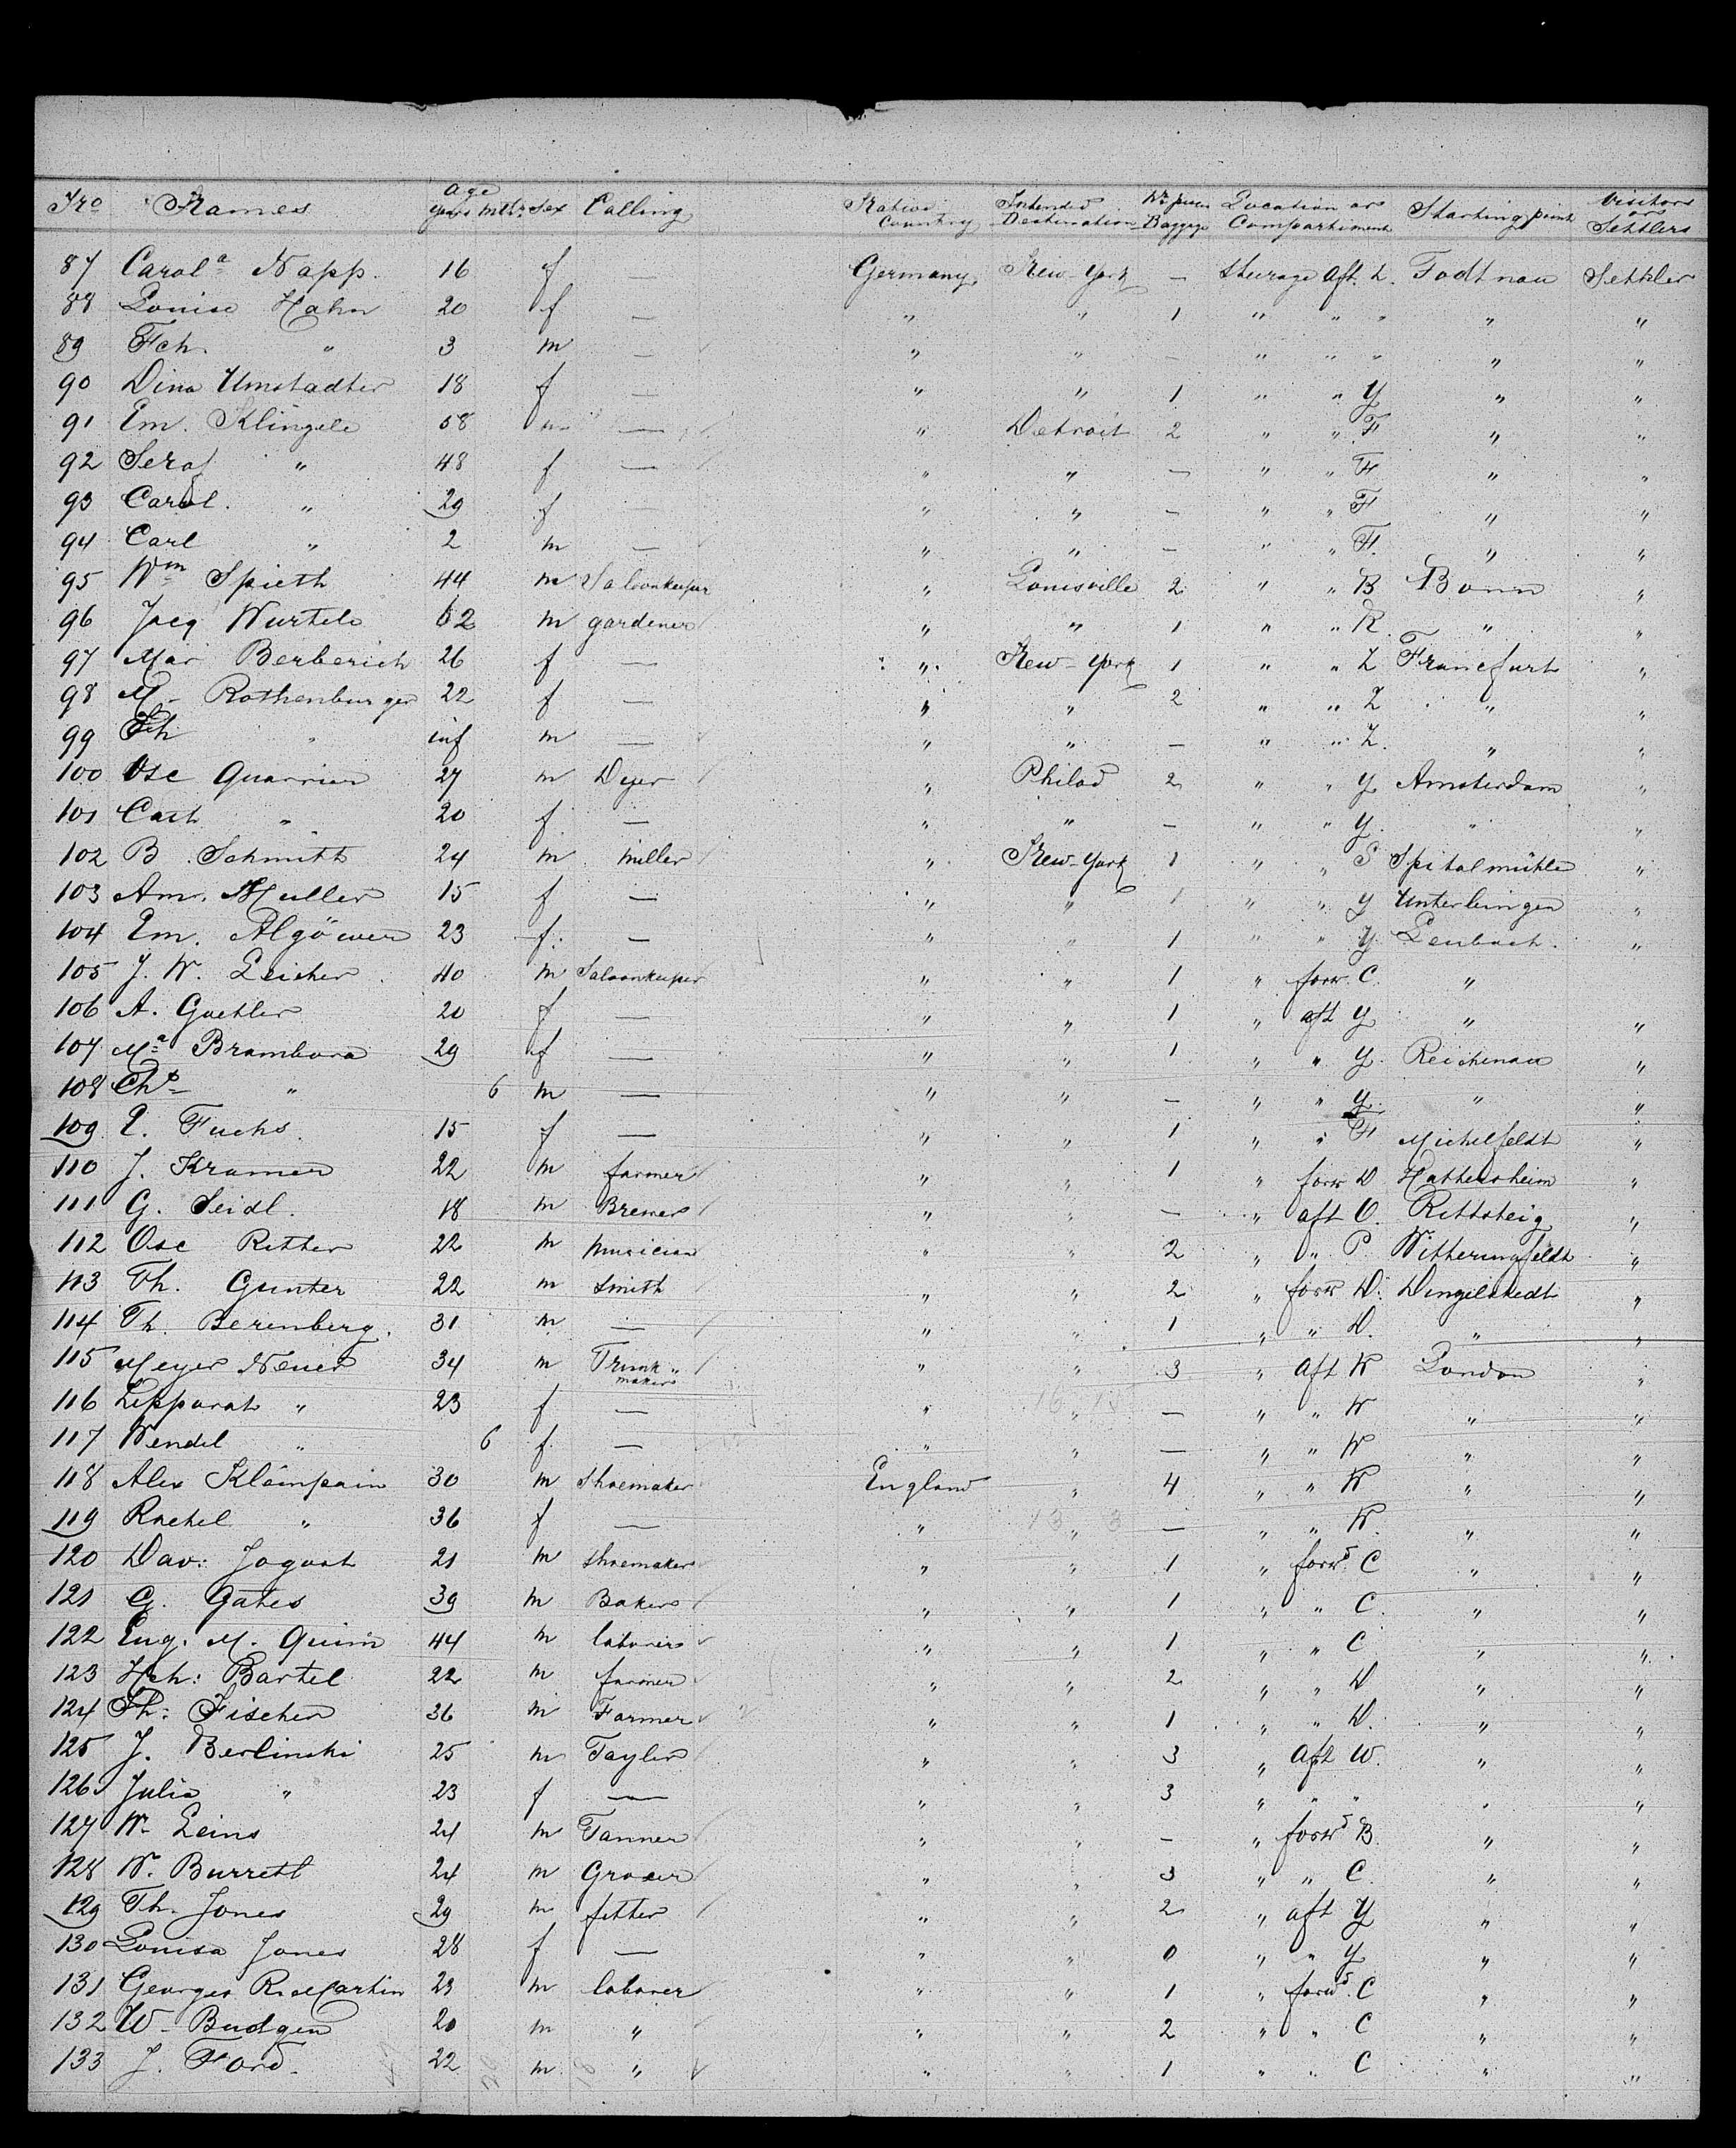 Nro Names Age years mths Sex Calling Native Country Intended Destination Nr pieces Baggage Location or Compartiment Starting point Visitors or Settlers
87 Carol.a Napp. 16 f — Germany New-York — Steerage aft. Z. Todtnau Settler
88 Louise Hahn 20 f — " " 1 " " " " "
89 Fch. " 3 m — " " — " " " " "
90 Dina Umstadter 18 f — " " 1 " " Y " "
91 Em. Klingele 58 m — " Detroit 2 " " F " "
92 Seraf " 48 f — " " — " " F " "
93 Carol. " 29 f — " " — " " F " "
94 Carl " 2 m — " " — " " F. " "
95 Wm Spieth 44 m Saloonkeeper " Louisville 2 " " B Bonn "
96 Jacq Wurtele 62 m gardener " " 1 " " R. " "
97 Mar Berberich 26 f — " New-York 1 " " Z Francfurt "
98 M- Rothenburger 22 f — " " 2 " " Z " "
99 Fch " inf m — " " — " " Z. " "
100 Osc Quarrier 27 m Dyer " Philad 2 " " Y Amsterdam "
101 Cath " 20 f — " " — " " Y. " "
102 B. Schmitt 24 m miller " New-York 1 " " S Spitalmühle "
103 Am. Muller 15 f — " " 1 " " Y Unterleingen "
104 Em. Algöwer 23 f. — " " 1 " " Y. Lenbach. "
105 J. W. Leicher 40 m Saloonkeeper " " 1 " forw. C. "
106 A. Goehler 20 f — " " 1 " aft Y " "
107 Ma Brambora 29 f — " " 1 " " Y. Reichenau "
108 Chs " 6 m — " " — " " Y. " "
109 E. Fuchs. 15 f — " " 1 " " F Michelfeldt "
110 J. Kramer 22 m farmer " " 1 " forw D Hattersheim "
111 G. Seidl. 18 m Brewer " " — " aft O. Rittsteig "
112 Osc Ritter 22 m musician " " 2 " " P. Witheringfeldt "
113 Th. Gunter 22 m Smith " " 2 " forw D. Dingelstedt "
114 Th. Berenberg. 31 m — " " 1 " " D. " "
115 Meyer Neuer 34 m Trunk " maker " " 3 " aft W London "
116 Lipparat " 23 f — " " — " " W " "
117 Wendel " 6 f. — " " — " " W " "
118 Alex Klompain 30 m Shoemaker England " 4 " " W " "
119 Rachel " 36 f — " " — " " W. " "
120 Dav: Jogust 21 m Shoemaker " " 1 " forwd. C " "
121 G. Gates 39 m Baker " " 1 " " C. " "
122 Eug. M. Quinn 44 m laborer " " 1 " " C " "
123 Hch: Bartel 22 m farmer " " 2 " " D " "
124 Ph: Fischer 36 m Farmer " " 1 " " D. " "
125 J. Berlinski 25 m Tayler " " 3 " aft W. " "
126 Julia " 23 f — " " 3 " " " " "
127 W- Leins 24 m Tanner " " — " forwd B. " "
128 W. Burrett 24 m Grocer " " 3 " " C. " "
129 Th. Jones 29 m fitter " " 2 " aft Y " "
130 Louisa Jones 28 f — " " 0 " " Y " "
131 Georges R. Martin 23 m laborer " " 1 " forwd. C " "
132 W- Budgen 20 m " " " 2 " " C " "
133 J. Ford. 22 m. " " " 1 " " C " "